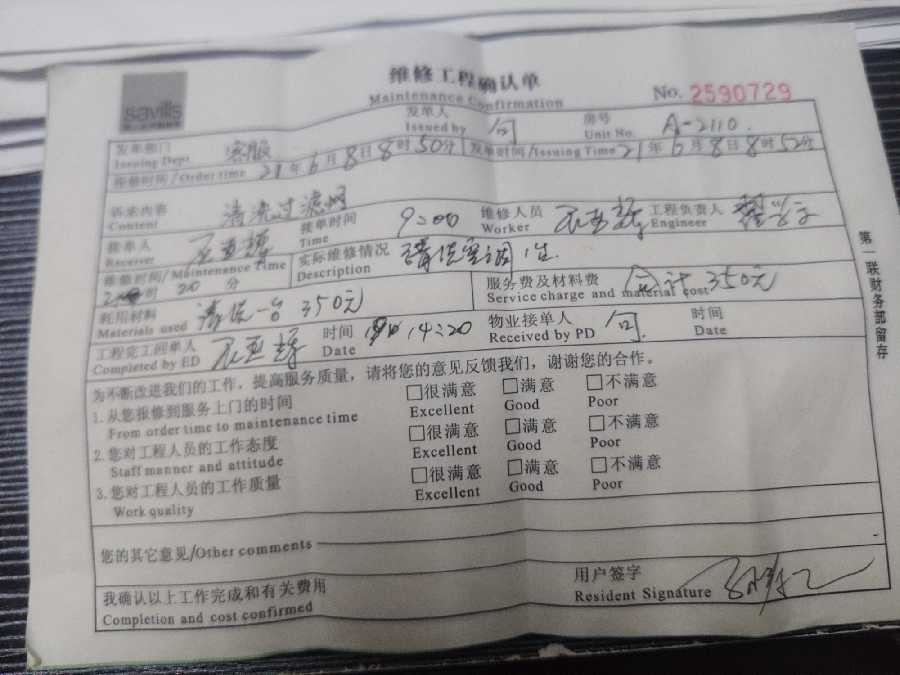 savills
维修工程确认单
Maintenance Confirmation
No. 2590729
发单部门 客服 发单人 房号
Issuing Dept Issued by Unit No. A-2110.
维修时间/Order time 21年6月8日8时50分 发单时间/Issuing Time 21年6月8日8时52分
诉求内容 清洗过滤网
Content
接单人 接单时间 9:00 维修人员 工程负责人
Receiver Time Worker Engineer
维修时间/Maintenance Time 实际维修情况
时20分 Description 清洗空调1台
耗用材料 清洗一台350元 服务费及材料费 合计350元
Materials used Service charge and material cost
工程完工回单人 时间 14:20 物业接单人 时间
Completed by ED Date Received by PD Date
为不断改进我们的工作，提高服务质量，请将您的意见反馈我们，谢谢您的合作。
1.从您报修到服务上门的时间 □很满意 □满意 □不满意
From order time to maintenance time Excellent Good Poor
2.您对工程人员的工作态度 □很满意 □满意 □不满意
Staff manner and attitude Excellent Good Poor
3.您对工程人员的工作质量 □很满意 □满意 □不满意
Work quality Excellent Good Poor
您的其它意见/Other comments
我确认以上工作完成和有关费用 用户签字
Completion and cost confirmed Resident Signature
第一联财务部留存